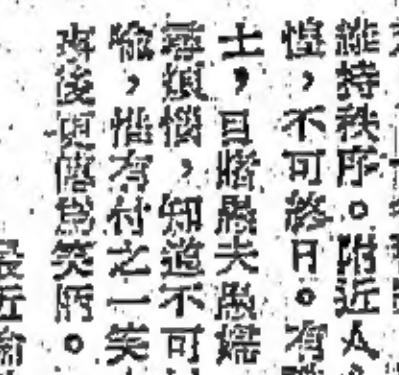 維持秩序。附近人
惶，不可終日。有
士，目睹愚夫愚婦
尋煩惱，知道不可
喻，惟有付之一笑
事後更傳爲笑柄。
最近